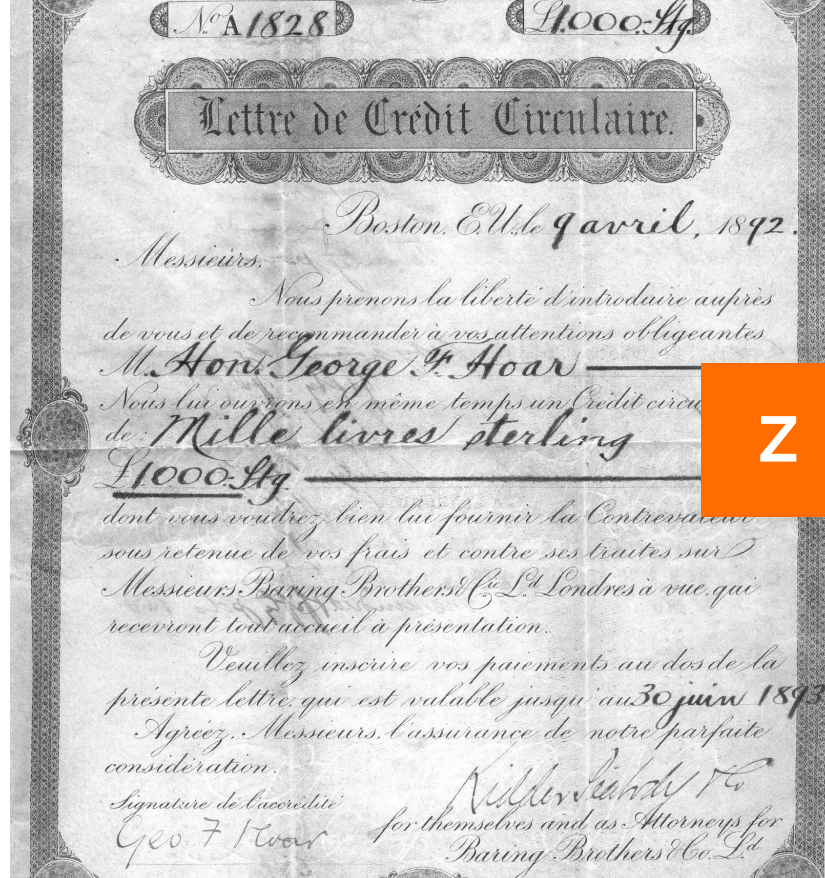 No. A1828
£1.000.Stg.
Lettre de Crédit Circulaire.
Boston, E.U. le 9 avril, 1892.
Messieurs,
Nous prenons la liberté d'introduire auprès
de vous et de recommander à vos attentions obligeantes
M. Hon. George F. Hoar
Nous lui ouvrons en même temps un Crédit
de: Mille livres sterling
£1000.Stg
Z
dont vous voudrez bien lui fournir la Contrevaleur
sous retenue de vos frais et contre ses traites sur
Messieurs Baring Brothers & Cie Ld Londres à vue, qui
recevront tout accueil à présentation.
Veuillez inscrire vos paiements au dos de la
présente lettre, qui est valable jusqu'au 30 juin 1893
Agréez, Messieurs, l'assurance de notre parfaite
considération.
Signature de l'accrédité
Geo F Hoar
Kidder Peabody & Co
for themselves and as Attorneys for
Baring Brothers & Co. Ld